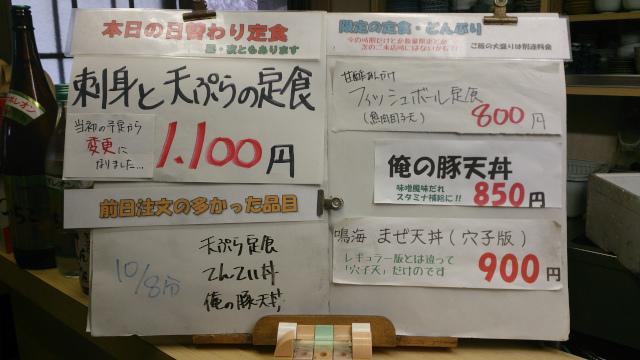 本日の日替わり定食
昼・夜ともあります
刺身と天ぷらの定食
当初の予定から
変更に
なりました…
1.100円
前日注文の多かった品目
10/8分
天ぷら定食
てんてい丼
俺の豚天丼
限定の定食・どんぶり
ご飯の大盛りは別途料金
フィッシュボール定食
(魚肉団子天)
800円
俺の豚天丼
味噌風味だれ
スタミナ補給に!!
850円
鳴海 まぜ天丼(穴子版)
レギュラー版とは違って
「穴子天」だけのです
900円